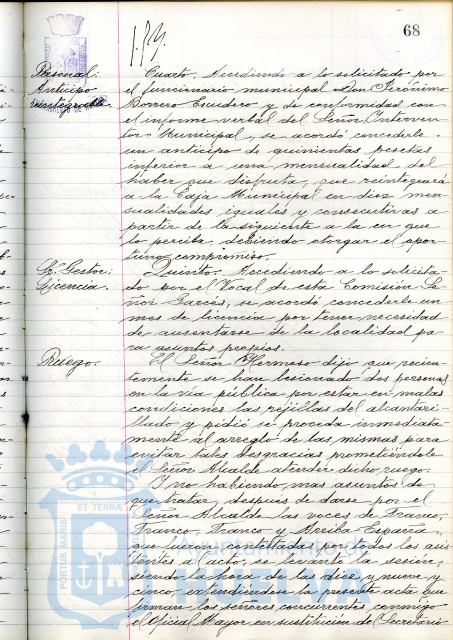 68
Personal:
Anticipo
reintegrable
Cuarto. Accediendo a lo solicitado por
el funcionario municipal don Jerónimo
Borrero Escudero y de conformidad con
el informe verbal del Señor Interven
tor Municipal, se acordó concederle
un anticipo de quinientas pesetas
inferior a una mensualidad del
haber que disfruta, que reintegrará
a la Caja Municipal en diez men
sualidades iguales y consecutivas a
partir de la siguiente a la en que
lo perciba, debiendo otorgar el opor
tuno compromiso.
Sr. Gestor:
Licencia.
Quinto. Accediendo a lo solicita
do por el Vocal de esta Comisión Se
ñor Garcés, se acordó concederle un
mes de licencia por tener necesidad
de ausentarse de la localidad pa
ra asuntos propios.
Ruego.
El Señor Hermoso dijo que recien
temente se han lesionado dos personas
en la vía pública por estar en malas
condiciones las rejillas del alcantari
llado y pidió se proceda inmediata
mente al arreglo de las mismas para
evitar tales desgracias prometiéndole
el Señor Alcalde atender dicho ruego.
Y no habiendo mas asuntos de
que tratar, después de darse por el
Señor Alcalde las voces de Franco,
Franco, Franco y Arriba España,
que fueron contestadas por todos los asis
tentes al acto, se levantó la sesión,
siendo la hora de las diez y nueve y
cinco, extendiéndose la presente acta que
firman los señores concurrentes conmigo
el Oficial Mayor en sustitución de Secretario
PORTUS MARIS
ET TERRAE
Ayuntamiento de
HUELVA